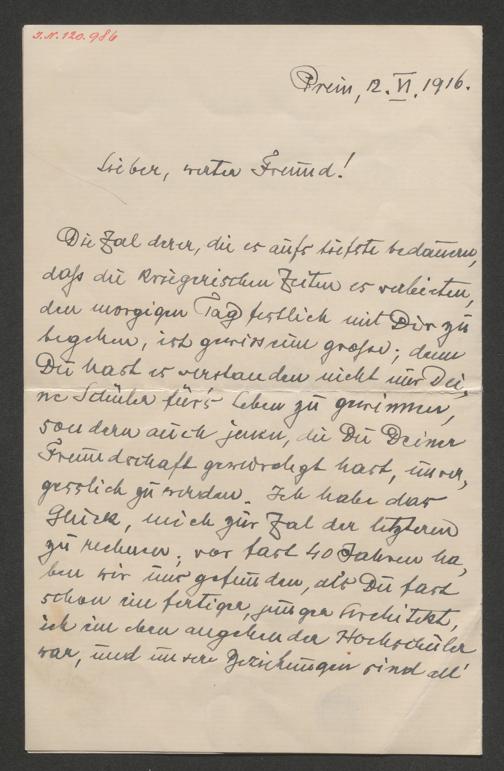 J.N. 120.986
Prein, 12. VI. 1916.
Lieber, werter Freund!
Die Zal derer, die es aufs tiefste bedauern,
daß die kriegerischen Zeiten es verbieten,
den morgigen Tag festlich mit Dir zu
begehen, ist gewiss eine große; denn
Du hast es verstanden nicht nur Dei,
ne Schüler für's Leben zu gewinnen,
sondern auch jenen, die Du Deiner
Freundschaft gewürdigt hast, unver,
gesslich zu werden. Ich habe das
Glück, mich zur Zal der letzteren
zu rechnen; vor fast 40 Jahren ha,
ben wir uns gefunden, als Du fast
schon ein fertiger, junger Architekt,
ich ein eben angehender Hochschüler
war, und unsere Beziehungen sind all'